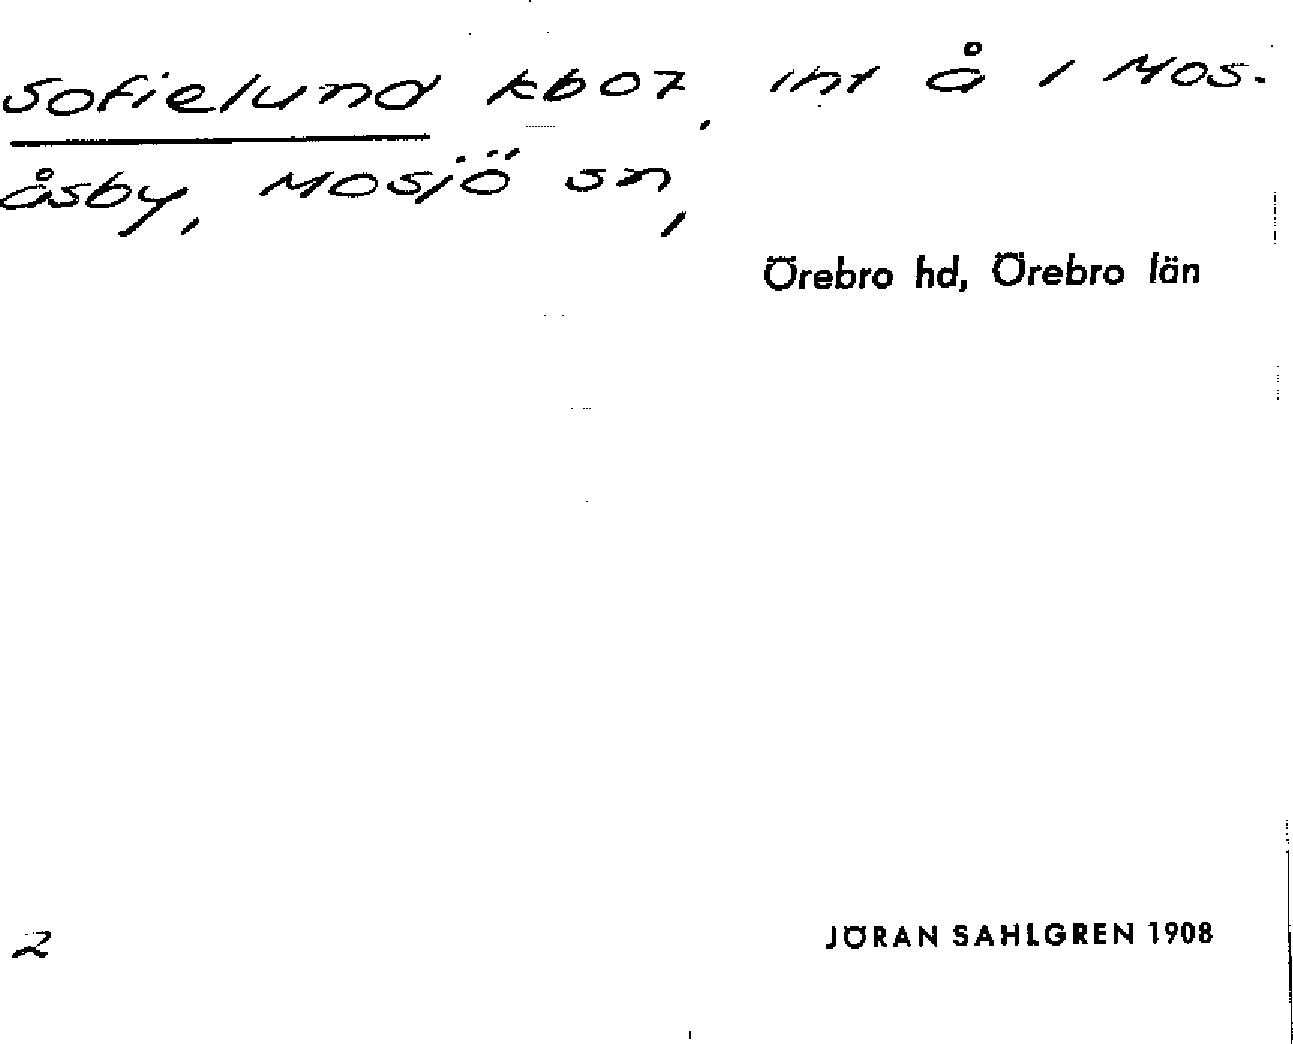 Sofielund kboz, int å i Mos-
åsby, Mosjö sn,
Örebro hd, Örebro län
2
JÖRAN SAHLGREN 1908